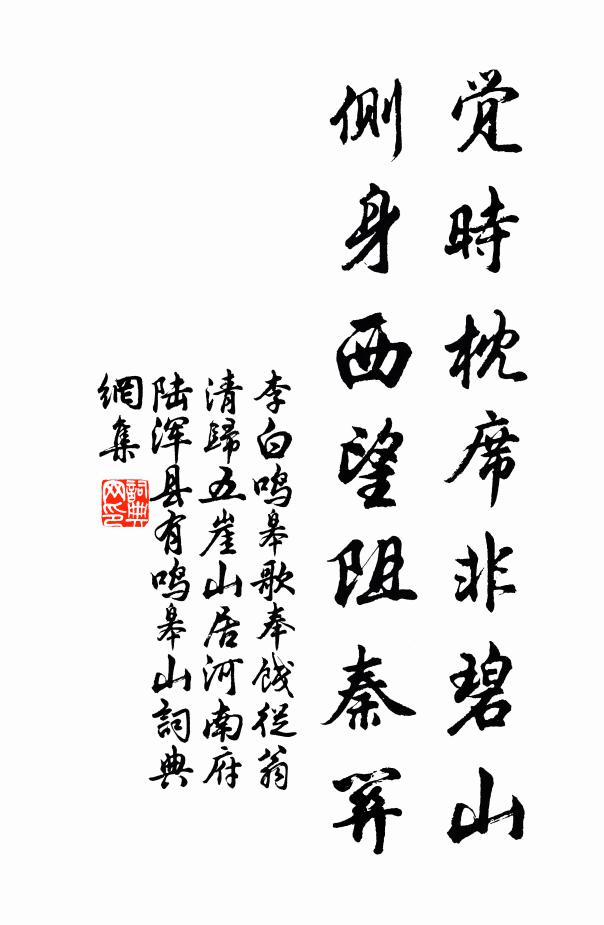 觉時枕席非碧山
側身西望阻秦関
李白鸣皋歌奉饯從翁
清歸五崖山居河南府
陆浑县有鸣皋山詞典
網集
詞典網印